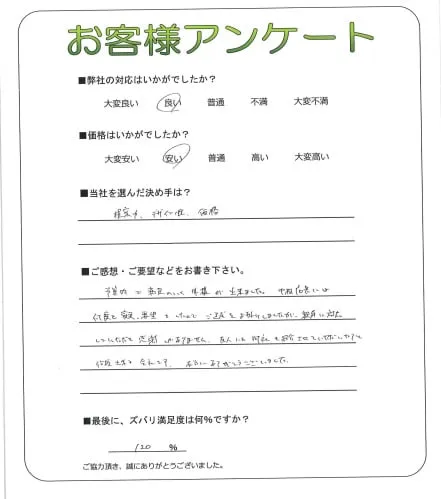 お客様アンケート
■弊社の対応はいかがでしたか？
大変良い 良い 普通 不満 大変不満
■価格はいかがでしたか？
大変安い 安い 普通 高い 大変高い
■当社を選んだ決め手は？
提案力、対応、価格
■ご感想・ご要望などをお書き下さい。
予算内で 満足のいく 外構が 出来ました。
何度も 変更、要望を ご迷惑をお掛けしましたが、親身に 対応
していただき 感謝しかありません。友人にも 御社を紹介させていただいたり
本当にありがとうございました。
■最後に、ズバリ満足度は何％ですか？
120 ％
ご協力頂き、誠にありがとうございました。